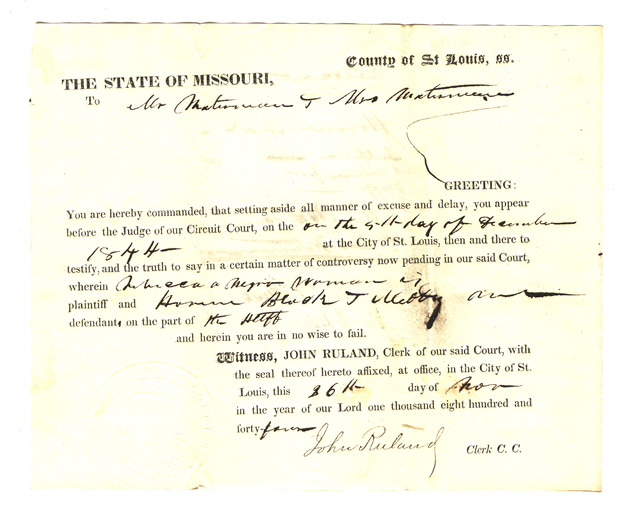 County of St Louis, ss.
THE STATE OF MISSOURI,
To Mr Waterman & Mrs Waterman
GREETING:
You are hereby commanded, that setting aside all manner of excuse and delay, you appear
before the Judge of our Circuit Court, on the on the 9th day of December
1844 at the City of St. Louis, then and there to
testify, and the truth to say in a certain matter of controversy now pending in our said Court,
wherein Rebecca a Negro Woman is
plaintiff and Black &
defendants on the part of the Pltff
and herein you are in no wise to fail.
Witness, JOHN RULAND, Clerk of our said Court, with
the seal thereof hereto affixed, at office, in the City of St.
Louis, this 26th day of Nov
in the year of our Lord one thousand eight hundred and
forty-four
John Ruland Clerk C. C.